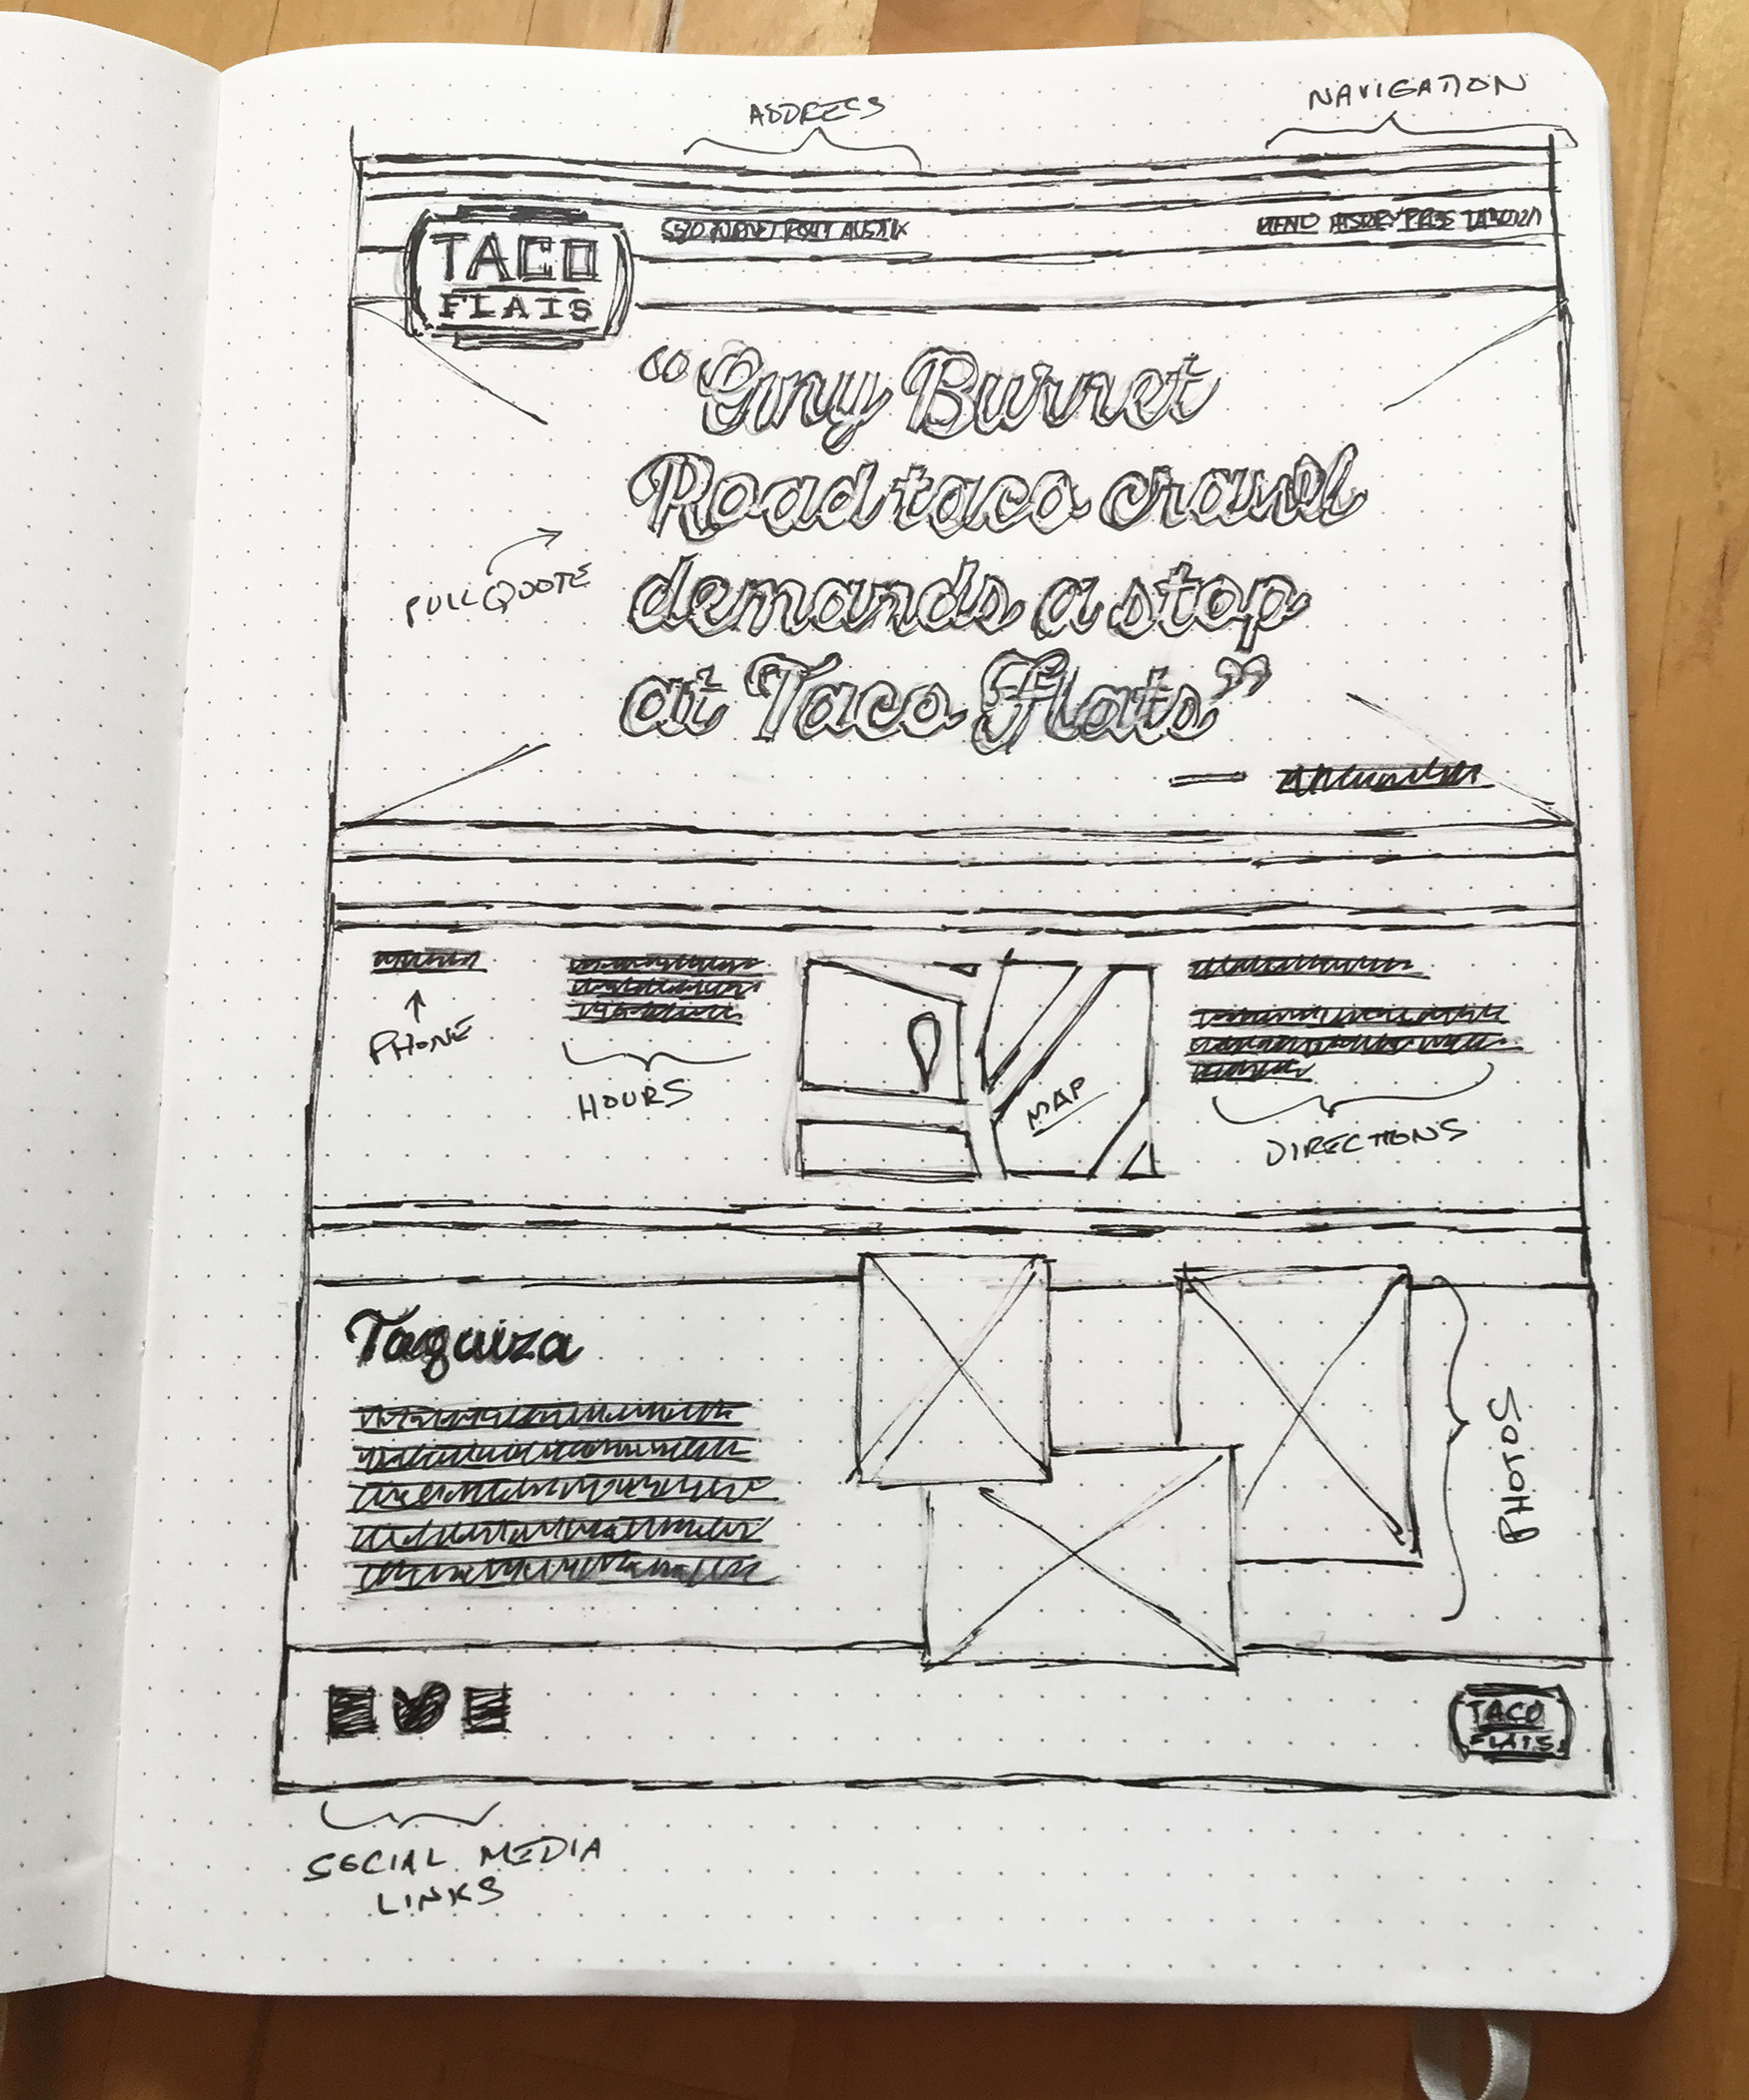 ADDRESS
NAVIGATION
TACO
FLATS
BURNET ROAD AUSTIN
MENU HISTORY PRESS TAQUIZA
“Gny Burnet
Road taco crawl
demands a stop
at Taco Flats”
PULL QUOTE
PHONE
HOURS
MAP
DIRECTIONS
Taquiza
PHOTOS
TACO
FLATS
SOCIAL MEDIA
LINKS